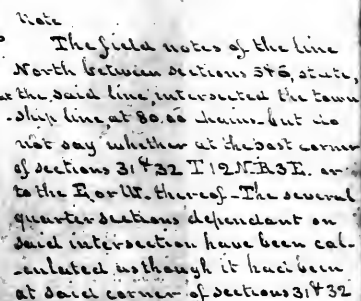 Note
The field notes of the line
North between sections 5 & 6, state,
at the said line, intersected the town
-ship line at 80.00 chains - but do
not say whether at the post corner
of sections 31 & 32 T 12 N. R 3 E. or
to the E. or W. thereof - The several
quarter sections dependant on
said intersection have been cal-
-culated as though it had been
at said corner of sections 31 & 32